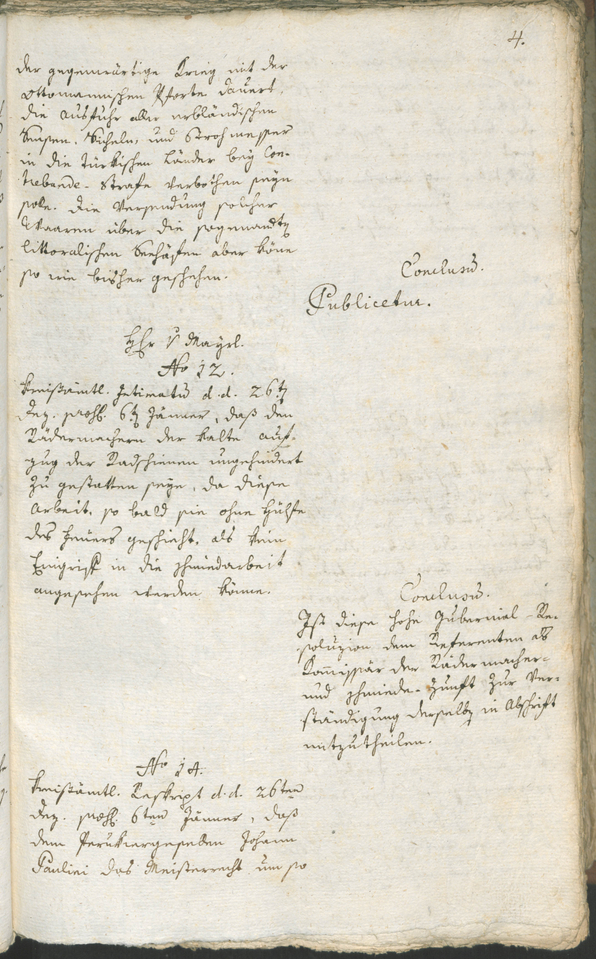 4.
der gegenwärtige Krieg mit der
Ottomannischen Pforte dauert,
die Ausfuhr aller erbländischen
Sensen, Sicheln, und Strohmesser
in die Türkischen Länder bey Con-
trebande-Strafe verbothen seyn
solle. Die Versendung solcher
Waaren über die sogenandte
littoralischen Seehäfen aber könne
so wie bisher geschehen.
Conclusum.
Publicetur.
Hr v Mayrl.
No 12.
Kreisämtl. Intimatum d. d. 26ten
Dez. praes. 6ten Jänner, daß den
Rädermachern der kalte Auf-
zug der Radschienen ungehindert
zu gestatten seye, da diese
Arbeit, so bald sie ohne Hühfe
des Feuers geschieht, als kein
Eingriff in die Schmiedarbeit
angesehen werden könne.
Conclusum.
Ist diese hohe Gubernial-Re-
soluzion dem Referenten als
Kommissär der Rädermacher-
und Schmiede-Zunft zur Ver-
ständigung derselben in Abschrift
mitzutheilen.
No 14.
Kreisämtl. Reskript d. d. 26ten
Dez. praes. 6ten Jänner, daß
dem Perukiergesellen Johann
Pauliei das Meisterrecht um so